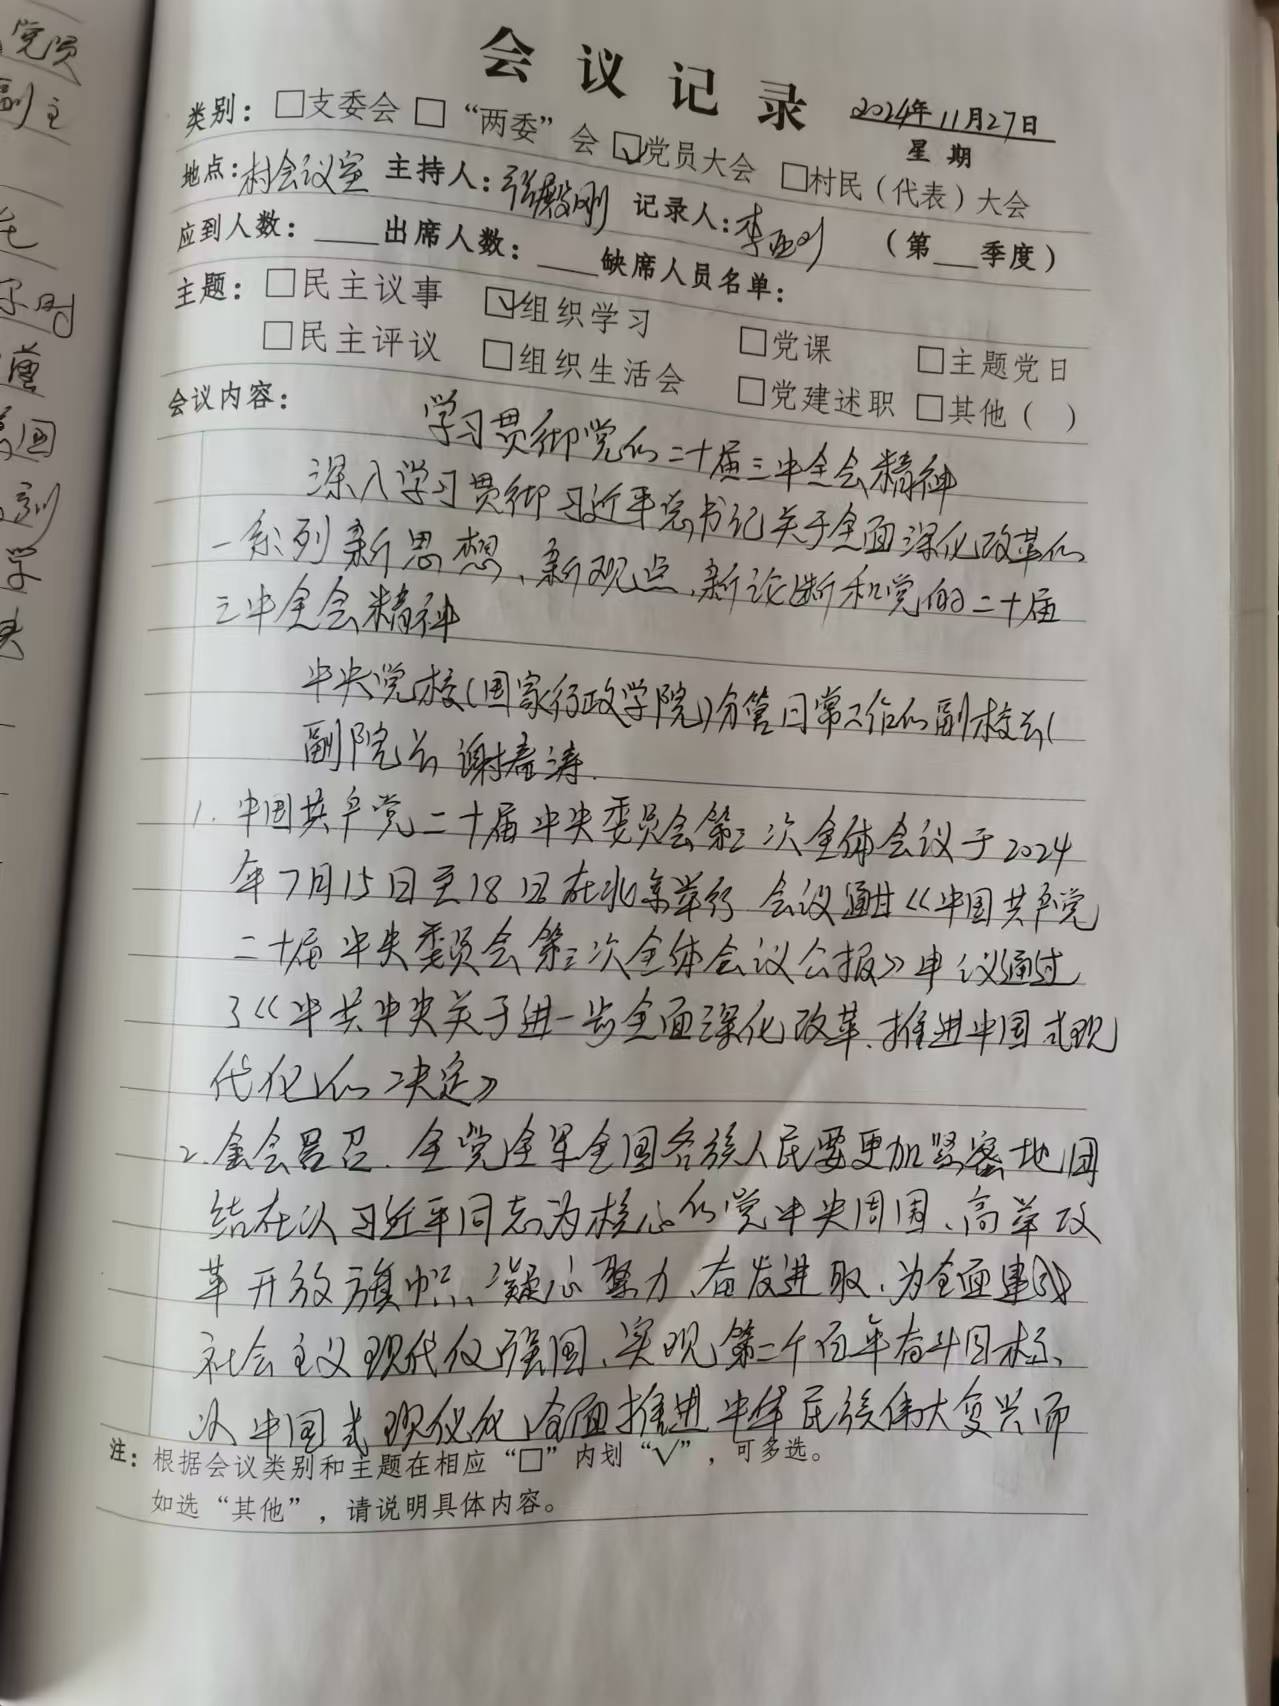 会议记录
2024年11月27日
类别：□支委会 □“两委”会 ☑党员大会 □村民（代表）大会
星期
地点：村会议室 主持人：张殿刚 记录人：李
（第__季度）
应到人数：____出席人数：____缺席人员名单：
主题：□民主议事 ☑组织学习 □党课 □主题党日
□民主评议 □组织生活会 □党建述职 □其他（ ）
会议内容：
学习贯彻党的二十届三中全会精神
深入学习贯彻习近平总书记关于全面深化改革的
一系列新思想、新观点、新论断和党的二十届
三中全会精神
中央党校(国家行政学院)分管日常工作的副校长(
副院长 谢春涛.
1. 中国共产党二十届中央委员会第三次全体会议于2024
年7月15日至18日在北京举行 会议通过《中国共产党
二十届中央委员会第三次全体会议公报》审议通过
了《中共中央关于进一步全面深化改革、推进中国式现
代化的决定》
2. 全会号召、全党全军全国各族人民要更加紧密地团
结在以习近平同志为核心的党中央周围、高举改
革开放旗帜、凝心聚力、奋发进取、为全面建成
社会主义现代化强国、实现第二个百年奋斗目标、
以中国式现代化全面推进中华民族伟大复兴而
注：根据会议类别和主题在相应“□”内划“√”，可多选。
如选“其他”，请说明具体内容。
党员
副主